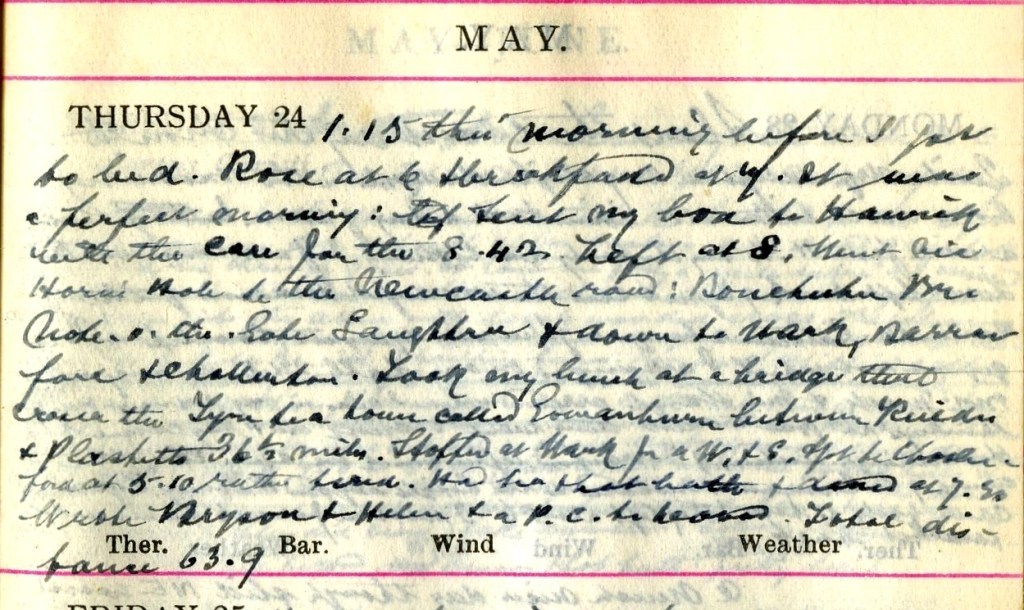 MAY.
THURSDAY 24 1.15 this morning before I got
to bed. Rose at 6 & breakfasted at 7. It was
a perfect morning: Sent my box to Hawick
with the car for the 8.42. Left at 8. Went via
Horns Hole to the Newcastle road: Bonchester Bri
Note o. the Gate Saughtree & down to Wark, Barras
ford & Chollerton. Took my lunch at a bridge that
cross the Tyne to a town called Gowanburn between Kielder
& Plashetts 36½ miles. Stopped at Wark for a W. & S. Got to Choller-
ford at 5.10 rather tired. Had tea & hot bath & dined at 7.
Wrote Bryson & Helen & a P.C. to Total dis-
tance 63.9
Ther. Bar. Wind Weather
FRIDAY 25